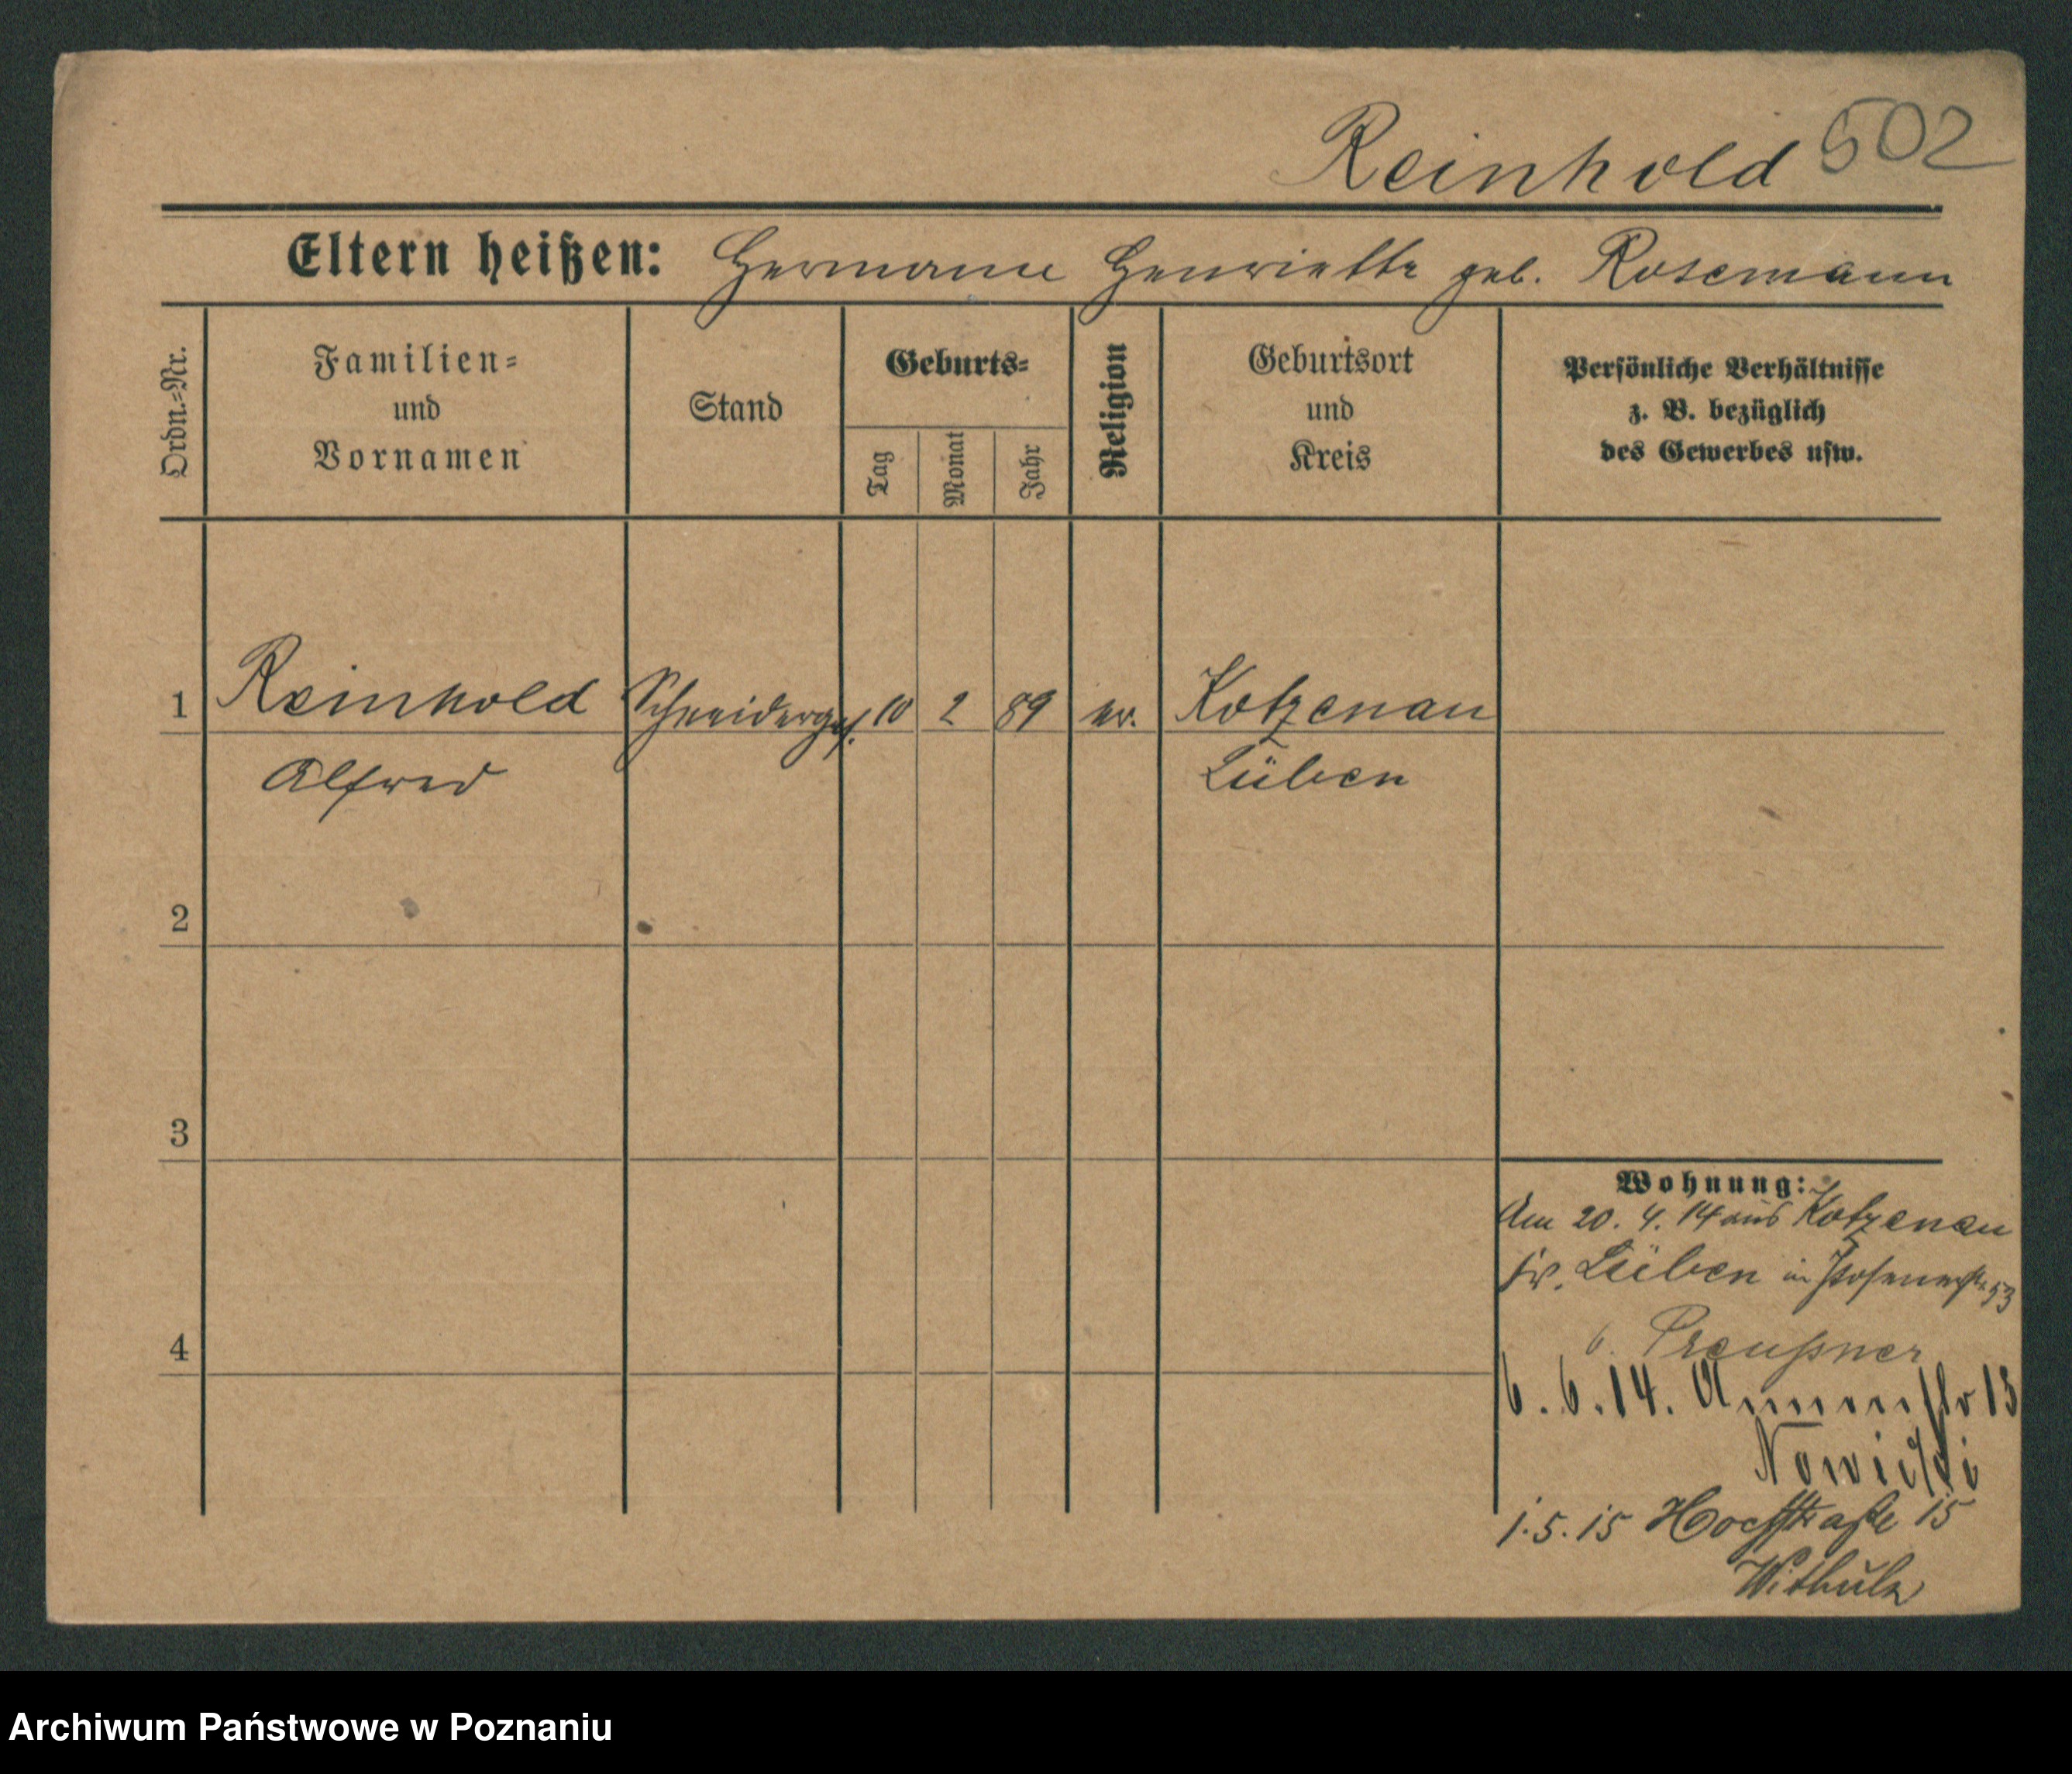 Reinhold 502
Eltern heißen: Hermann Henriette geb. Rosemann
Ordn.-Nr.
Familien-
und
Vornamen
Stand
Geburts-
Tag
Monat
Jahr
Religion
Geburtsort
und
Kreis
Persönliche Verhältnisse
z. B. bezüglich
des Gewerbes usw.
1 Reinhold Schneiderges. 10 2 89 ev. Kotzenau
Alfred Lüben
2
3
4
Wohnung:
Am 20. 4. 14 aus Kotzenau
Kr. Lüben in Posenerstr. 53
b. Preußner
6. 6. 14. Annenstr 13
Nowicki
1. 5. 15 Hochstraße 15
Archiwum Państwowe w Poznaniu